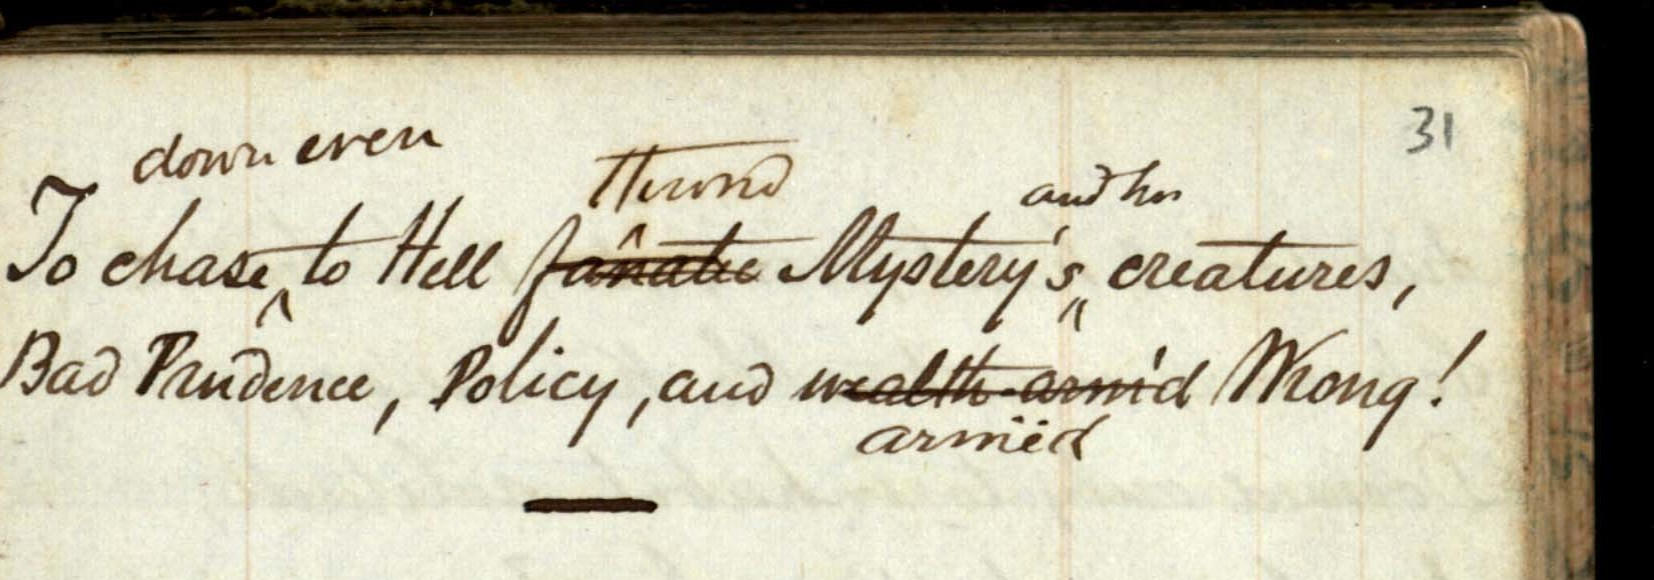 31
down even
Thron'd
and her
To chase to Hell fanatic Mystery's creatures,
Bad Prudence, Policy, and wealth-arm'd Wrong!
armëd